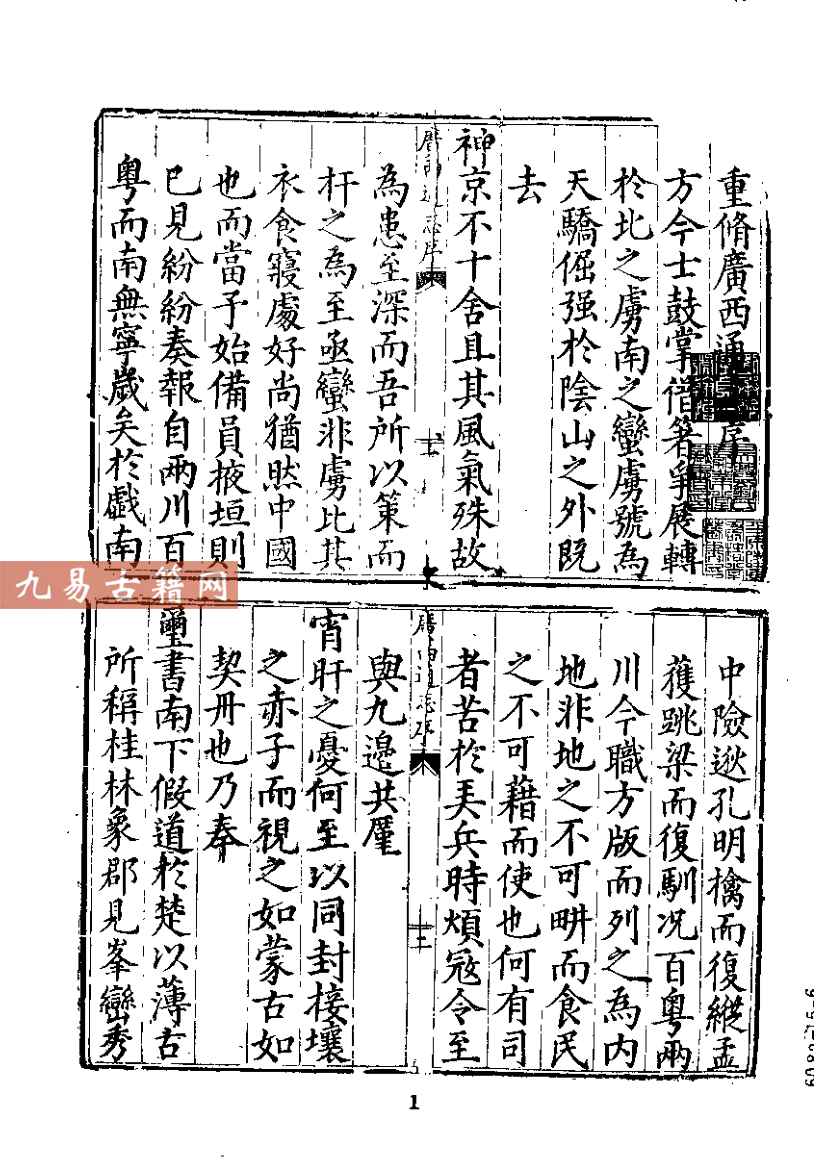 重脩廣西通序
方今士鼓掌借箸爭展轉
於北之虜南之蠻虜號為
天驕倔强於陰山之外既
去
神京不十舍且其風氣殊故
廣西通志序
為患至深而吾所以策而
杆之為至亟蠻非虜比其
衣食寢處好尚猶然中國
也而當予始備員掖垣則
已見紛紛奏報自兩川百
粵而南無寧歲矣於戲南
中險逖孔明擒而復縱孟
獲跳梁而復馴况百粵兩
川今職方版而列之為內
地非地之不可畊而食民
之不可藉而使也何有司
者苦於美兵時煩冦令至
廣西通志序
二
與九邊共厪
宵旰之憂何至以同封接壤
之赤子而視之如蒙古如
契丹也乃奉
璽書南下假道於楚以薄古
所稱桂林象郡見峯巒秀
九易古籍网
1